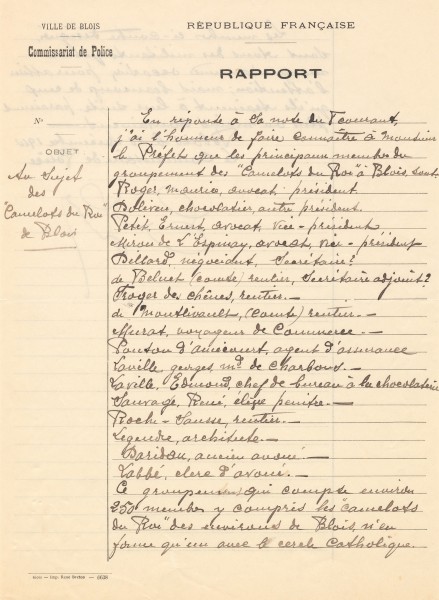 VILLE DE BLOIS
Commissariat de Police
RÉPUBLIQUE FRANÇAISE
RAPPORT
N°
OBJET
Au Sujet
des
"Camelots du Roi"
de Blois
En réponse à sa note du 7 courant,
j'ai l'honneur de faire connaître à Monsieur
le Préfet que les principaux membres du
groupement des "Camelots du Roi" à Blois, sont:
Roger, Maurice, avocat - président
Poulain, chocolatier, autre président.
Petit, Ernest, avocat vice - président
de L'Espinay, avocat, vice - président
Billard, négociant, Secrétaire?
de Beluet (comte) rentier, Secrétaire adjoint?
Froger des chênes, rentier. -
de Montlivault, (comte) rentier. -
Murat, voyageur de Commerce. -
Ponton d'Amécourt, agent d'assurance
Laville georges md de Charbons. -
Laville, Edmond, chef de bureau à la chocolaterie
Sauvage, René, élève peintre. -
Roch - Sausse, rentier. -
Legendre, architecte -
ancien avoué. -
Labbé, clerc d'avoué. -
Ce groupement qui compte environ
250 membres y compris les "camelots
du Roi" des environs de Blois, n'en
forme qu'un avec le cercle catholique.